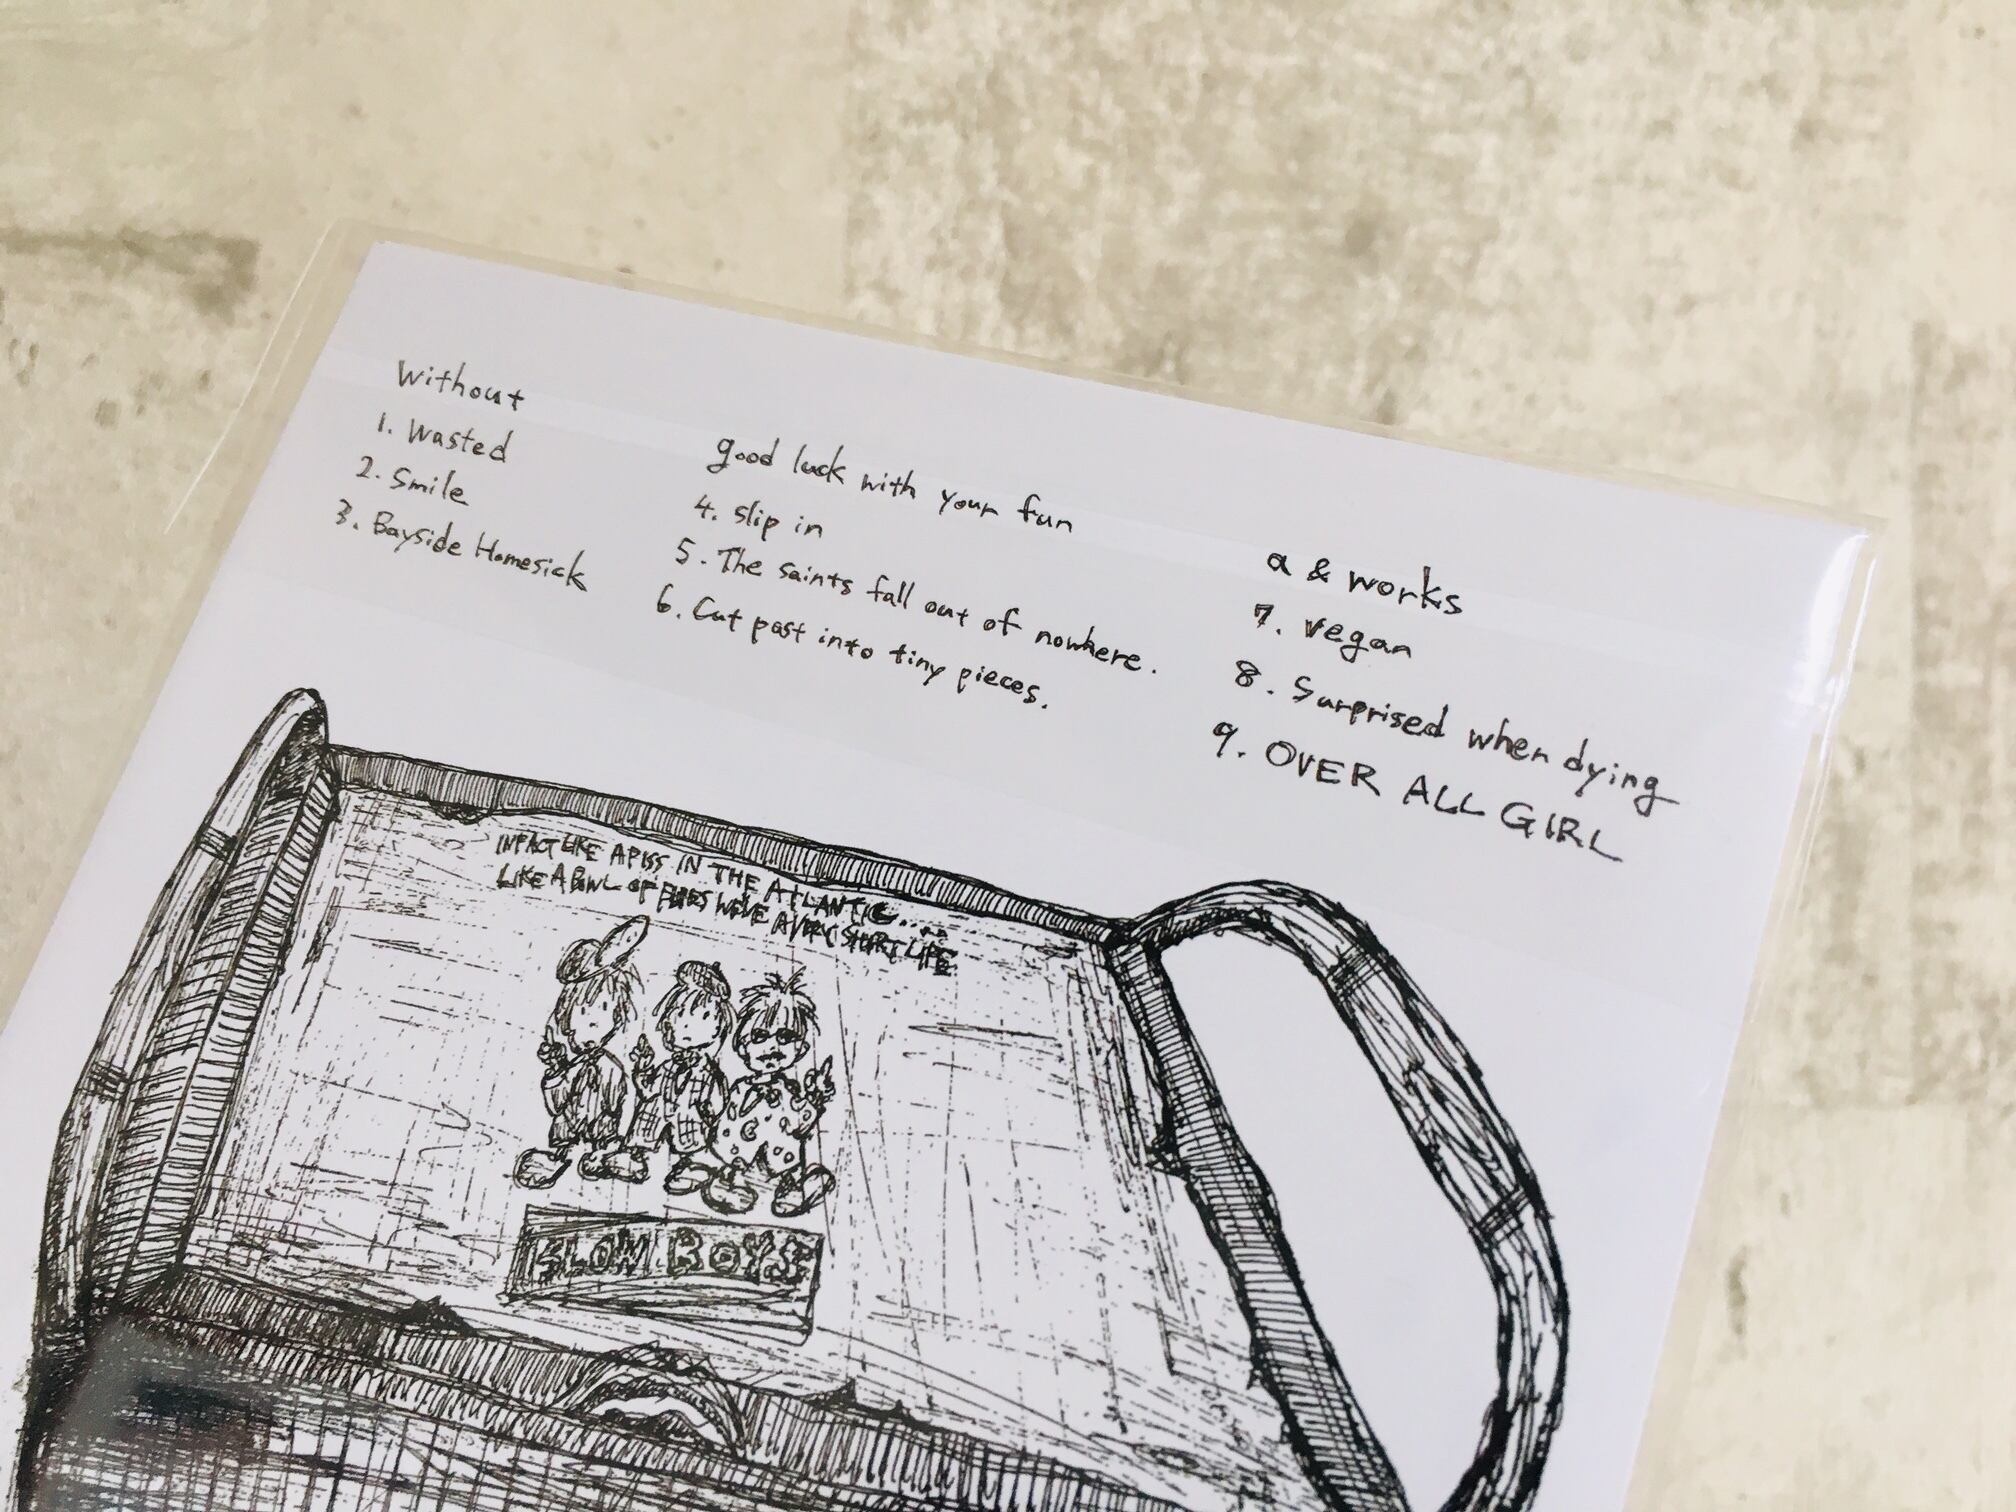 Without
1. Wasted
2. Smile
3. Bayside Homesick
good luck with your fun
4. Slip in
5. The saints fall out of nowhere.
6. Cut past into tiny pieces.
a & works
7. vegan
8. Surprised when dying
9. OVER ALL GIRL
LIKE A PISS IN THE ATLANTIC...
LIKE A BOWL OF WE'VE A VERY SHORT LIFE
SLOW BOYS